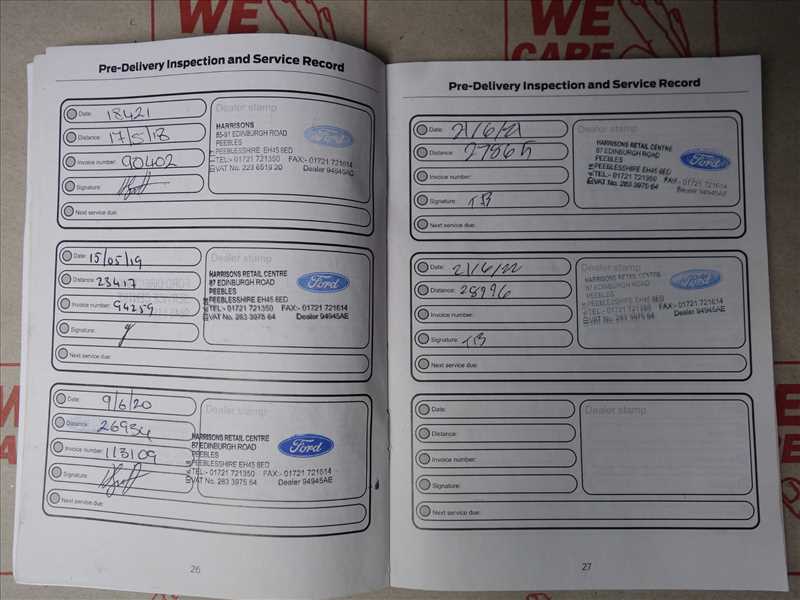 WE
CARE
WE
CARE
Pre-Delivery Inspection and Service Record
Date: 18421
Distance: 17/5/18
Invoice number: 90402
Signature:
Next service due:
Dealer stamp
HARRISONS
85-91 EDINBURGH ROAD
PEEBLES
PEEBLESSHIRE EH45 8ED
TEL:- 01721 721350 FAX:- 01721 721614
VAT No. 223 6519 20 Dealer 94945AE
Ford
Date: 15/05/19
Distance: 23417
Invoice number: 94259
Signature:
Next service due:
Dealer stamp
HARRISONS RETAIL CENTRE
87 EDINBURGH ROAD
PEEBLES
PEEBLESSHIRE EH45 8ED
TEL:- 01721 721350 FAX:- 01721 721614
VAT No. 283 3975 64 Dealer 94945AE
Ford
Date: 9/6/20
Distance: 26934
Invoice number: 113109
Signature:
Next service due:
Dealer stamp
HARRISONS RETAIL CENTRE
87 EDINBURGH ROAD
PEEBLES
PEEBLESSHIRE EH45 8ED
TEL:- 01721 721350 FAX:- 01721 721614
VAT No. 283 3975 64 Dealer 94945AE
Ford
26
Pre-Delivery Inspection and Service Record
Date: 21/6/21
Distance: 27865
Invoice number:
Signature: TB
Next service due:
Dealer stamp
HARRISONS RETAIL CENTRE
87 EDINBURGH ROAD
PEEBLES
PEEBLESSHIRE EH45 8ED
TEL:- 01721 721350 FAX:- 01721 721614
VAT No. 283 3975 64 Dealer 94945AE
Ford
Date: 21/6/22
Distance: 28996
Invoice number:
Signature: TB
Next service due:
Dealer stamp
HARRISONS RETAIL CENTRE
87 EDINBURGH ROAD
PEEBLES
PEEBLESSHIRE EH45 8ED
TEL:- 01721 721350 FAX:- 01721 721614
VAT No. 283 3975 64 Dealer 94945AE
Ford
Date:
Distance:
Invoice number:
Signature:
Next service due:
Dealer stamp
27